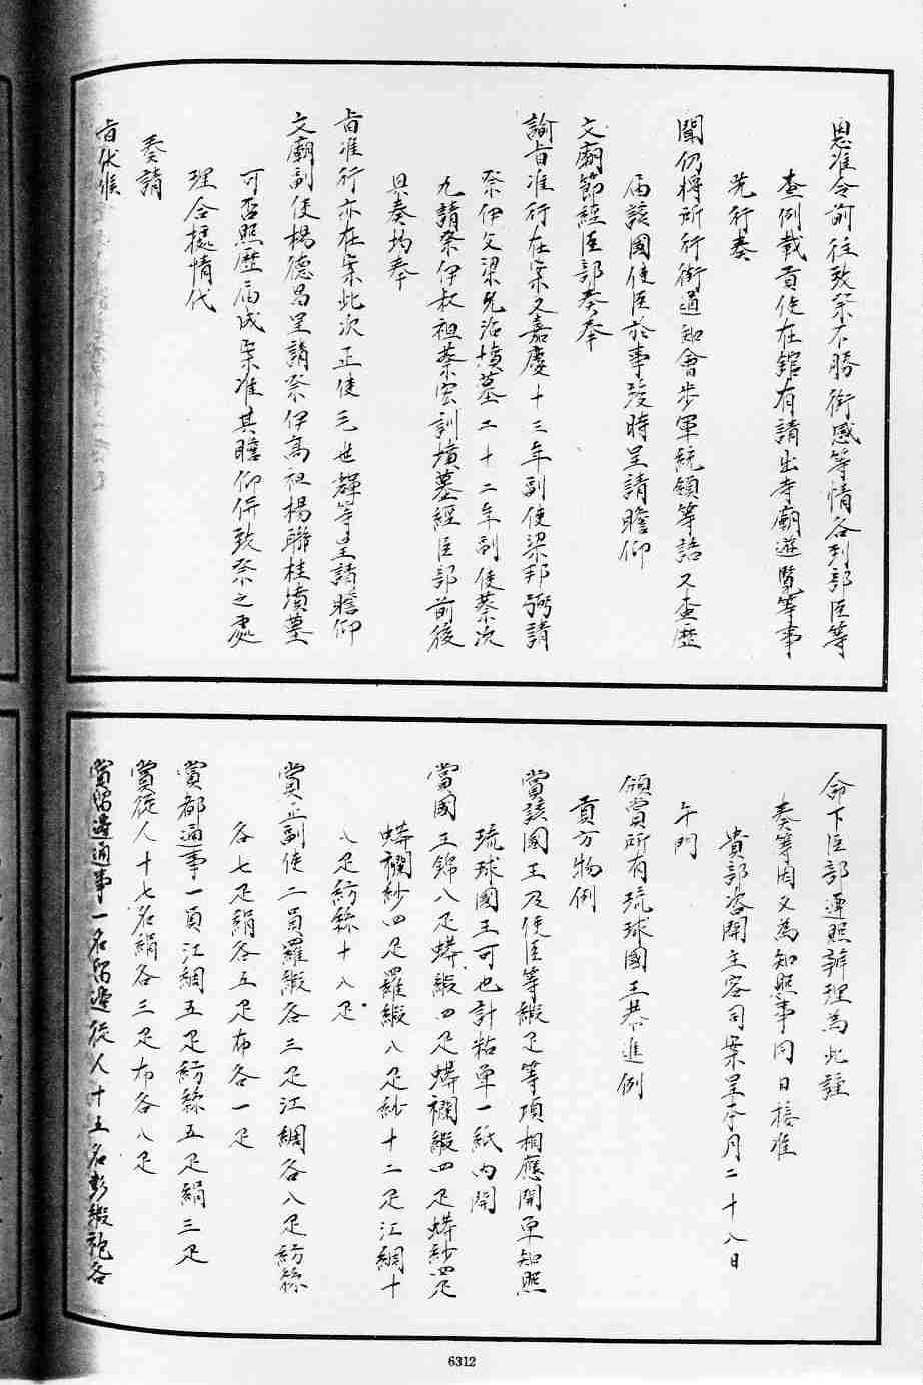 恩准令前往致祭不勝銜感等情各到部臣等
查例載貢使在館有請出寺廟遊覽等事
先行奏
聞仍將所行街道知會步軍統領等語又查歷
屆該國使臣於事竣時呈請瞻仰
文廟節經臣部奏奉
諭旨准行在案又嘉慶十三年副使梁邦弼請
祭伊父梁允治墳墓二十二年副使蔡次
九請祭伊叔祖蔡宏訓墳墓經臣部前後
具奏均奉
旨准行亦在案此次正使毛世輝等呈請瞻仰
文廟副使楊德昌呈請祭伊高祖楊聯桂墳墓
可否照歷屆成案准其瞻仰併致祭之處
理合據情代
奏請
旨伏候
命下臣部遵照辦理為此謹
奏等因又為知照事同日接准
貴部咨開主客司案呈本月二十八日
午門
頒賞所有琉球國王恭進例
貢方物例
賞該國王及使臣等緞疋等項相應開單知照
琉球國王可也計粘單一紙內開
賞國王錦八疋蟒緞四疋蟒襴緞四疋蟒紗四疋
蟒襴紗四疋羅緞八疋紗十二疋江綢十
八疋紡絲十八疋
賞正副使二員羅緞各三疋江綢各八疋紡絲
各七疋絹各五疋布各一疋
賞都通事一員江綢五疋紡絲五疋絹三疋
賞從人十七名絹各三疋布各八疋
賞留邊通事一名留邊從人十五名彭緞袍各
6312